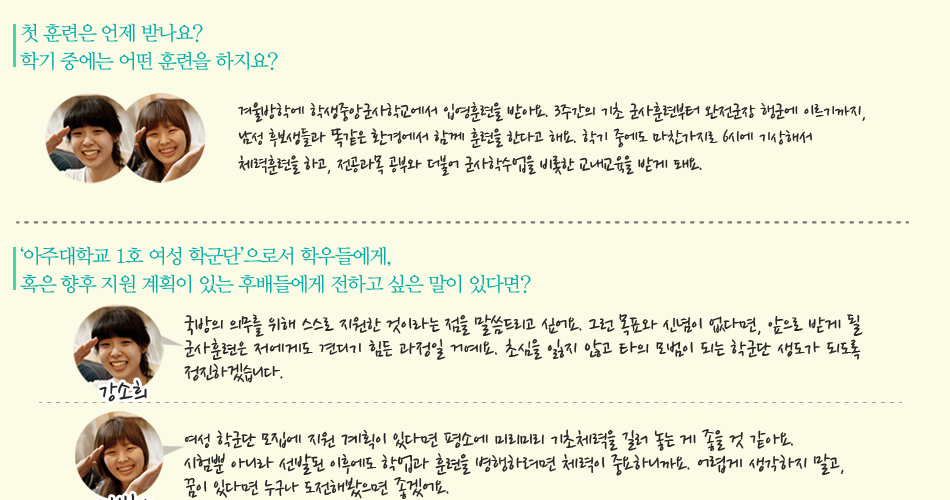 첫 훈련은 언제 받나요?
학기 중에는 어떤 훈련을 하지요?
겨울방학에 학생중앙군사학교에서 입영훈련을 받아요. 3주간의 기초 군사훈련부터 완전군장 행군에 이르기까지,
남성 후보생들과 똑같은 환경에서 함께 훈련을 한다고 해요. 학기 중에도 마찬가지로 6시에 기상해서
체력훈련을 하고, 전공과목 공부와 더불어 군사학수업을 비롯한 교내교육을 받게 돼요.
‘아주대학교 1호 여성 학군단’으로서 학우들에게,
혹은 향후 지원 계획이 있는 후배들에게 전하고 싶은 말이 있다면?
국방의 의무를 위해 스스로 지원한 것이라는 점을 말씀드리고 싶어요. 그런 목표와 신념이 없다면, 앞으로 받게 될
군사훈련은 저에게도 견디기 힘든 과정일 거예요. 초심을 잃지 않고 타의 모범이 되는 학군단 생도가 되도록
정진하겠습니다.
강소희
여성 학군단 모집에 지원 계획이 있다면 평소에 미리미리 기초체력을 길러 놓는 게 좋을 것 같아요.
시험뿐 아니라 선발된 이후에도 학업과 훈련을 병행하려면 체력이 중요하니까요. 어렵게 생각하지 말고,
꿈이 있다면 누구나 도전해봤으면 좋겠어요.